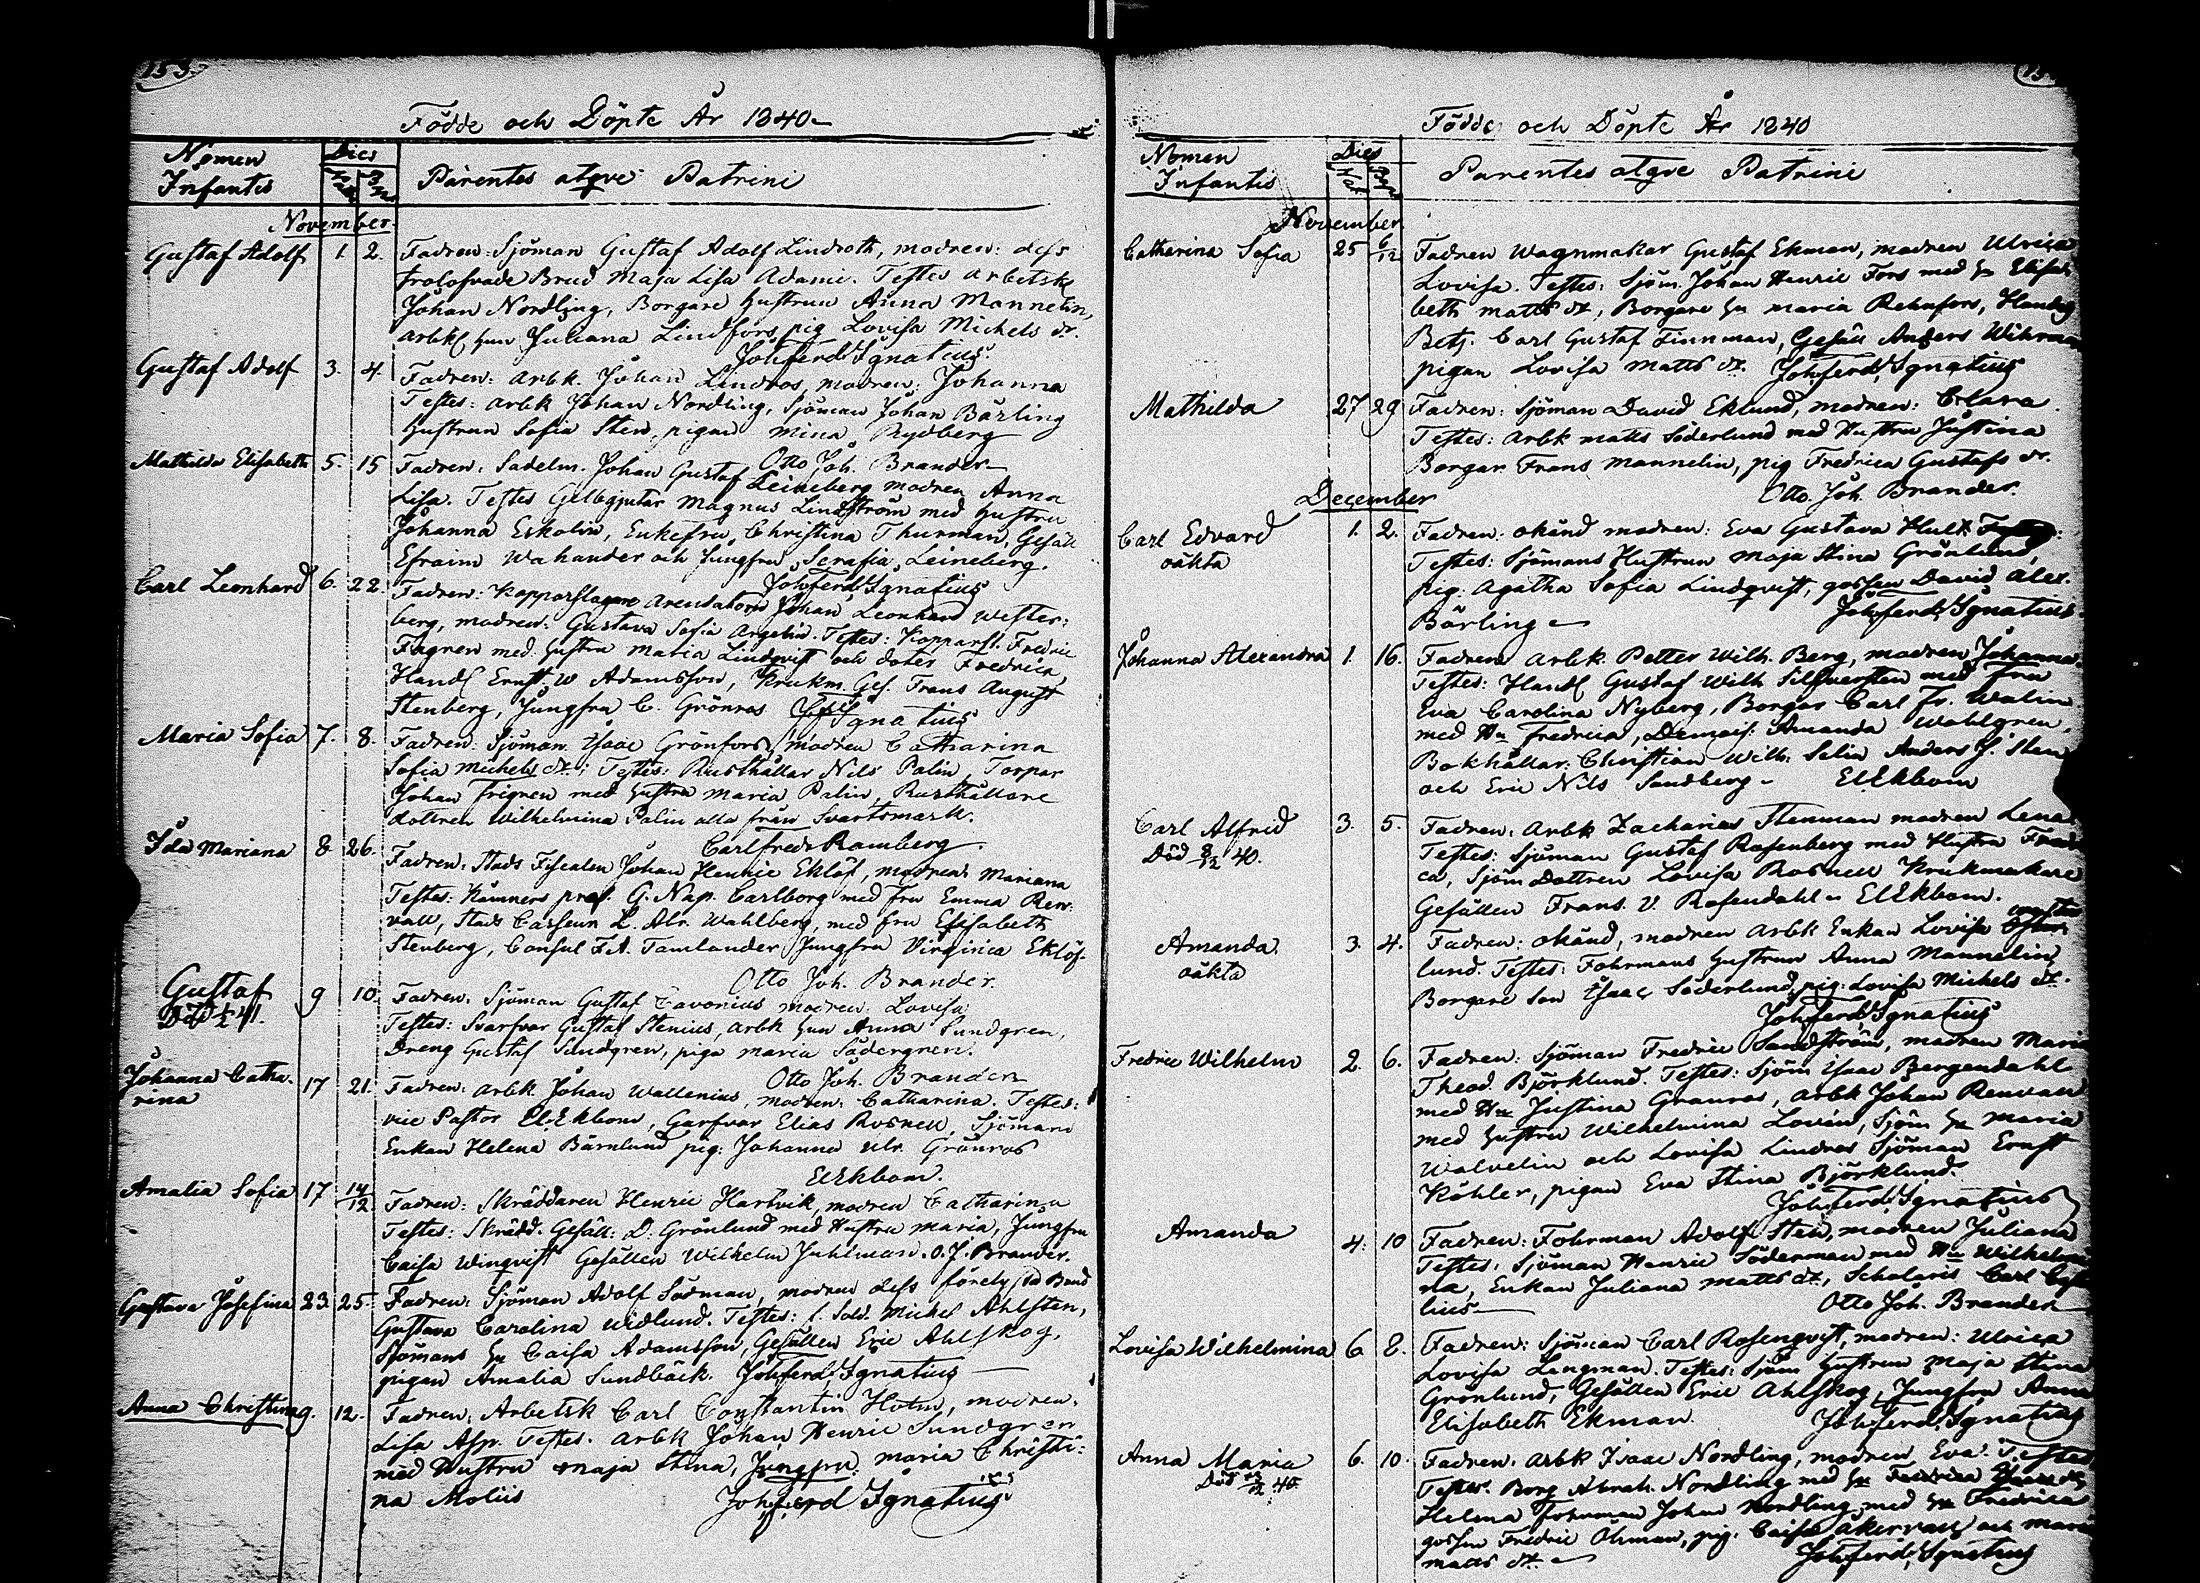 153.
Födde och Döpte År 1840
Nomen Infantis
Dies
Parentes atqve Patrini
November
Gustaf Adolf 1. 2. Fadren: Sjöman Gustaf Adolf Lindroth, modren: dess
trolofvade Brud Maja Lisa Adami. Testes Arbetsk
Johan Nordling, Borgare hustrun Anna Mannelin,
arbk hun Juliana Lindfors pig Lovisa Michels dr.
Joh. Ferd. Ignatius.
Gustaf Adolf 3. 4. Fadren: arbk. Johan Lindros, modren: Johanna
Testes: arbk Johan Nordling, Sjöman Johan Bärling
hustrun Sofia Sten, pigan Mina Rydberg
Otto Joh. Brander
Mathilda Elisabeth 5. 15 Fadren: Sadelm. Johan Gustaf Leineberg modren Anna
Lisa. Testes Gelbgjutar Magnus Lindström med hustru
Johanna Eskolin, Enkefru Christina Thurman, Gesäll
Efraim Wahander och Jungfru Serafia Leineberg.
Joh. Ferd. Ignatius
Carl Leonhard 6. 22. Fadren: Kopparslagare Arendatorn Johan Leonhard Wester:
berg, modren: Gustava Sofia Argelin. Testes: Kopparsl. Fredric
Fagren med hustru Maria Lindqvist och doter Fredrica,
Handl Ernst W Adamsson, Krukm. Ges. Frans August
Stenberg, Jungfru C. Grönros Ignatius
Maria Sofia 7. 8. Fadren: Sjöman Isaac Grönfors, modren Catharina
Sofia Michels dr; Testes: Rusthållar Nils Palin, Torpar
Johan Frigren med hustru Maria Palin, Rusthållare
dottren Wilhelmina Palin alla från Svartsmark.
Carl Fredr. Ramberg.
Ida Mariana 8. 26. Fadren: Stads Fiscalen Johan Henric Eklöf, modren Mariana
Testes: Kämners præs. G. Nap. Carlborg med fru Emma Ren:
vall, Stads Casseun L. Alr. Wahlberg, med fru Elisabeth
Stenberg, Consul F.A. Tamlander, Jungfru Virginia Eklöf.
Otto Joh. Brander.
Gustaf 9 10. Fadren: Sjöman Gustaf Cavonius modren Lovisa
Testes: Svarfvar Gustaf Stenius, arbk hun Anna Sundgren,
Dreng Gustaf Sundgren, piga Maria Södergren.
Otto Joh. Brander
Johanna Catha-
rina 17 21. Fadren: arbk Johan Wallenius, modren: Catharina. Testes:
vice Pastor El. Ekbom, Garfvar Elias Rosnell, Sjömans
Enkan Helena Bärnlund pig: Johanna Ulr. Grönros
El Ekbom.
Amalia Sofia 17 14/12 Fadren: Skräddaren Henric Hartvik, modren Catharina
Testes: Skrädd. Gesäll: D. Grönlund med Hustru Maria, Jungfru
Caisa Winqvist Gesällen Wilhelm Juhlman. O. J. Brander.
Gustava Josefina 23. 25. Fadren: Sjöman Adolf Sodman, modren dess förelofvad Brud
Gustava Carolina Widlund. Testes: f. Sold. Michel Ahlsten,
Sjömans hu Caisa Adamsson, Gesällen Eric Ahlskog,
pigan Amalia Sundbäck. Joh. Ferd. Ignatius
Anna Christina 9. 12. Fadren: Arbetsk Carl Constantin Holm, modren.
Lisa Asp. Testes. Arbk Johan Henric Sundgren
med Hustru Maja Stina, Jungfru Maria Christi:
na Molüs Joh. Ferd Ignatius
Födde och Döpte År 1840
Nomen Infantis
Dies
Nat Bapt
Parentes atqve Patrini
November
Catharina Sofia 25 6/12 Fadren Wagnmakar Gustaf Ekman, modren Ulrica
Lovisa. Testes: Sjöm. Johan Henric Fors med hu Elisa-
beth Matts dr, Borgare hu Maria Rehnfors, Handels
Betj. Carl Gustaf Finnman, Gesäll Anders Wihrman
pigan Lovisa Matts dr. Joh. Ferd. Ignatius
Mathilda 27 29 Fadren: Sjöman David Eklund, modren: Clara
Testes: Arbk Matts Söderlund med Hustru Justina
Borgar. Frans Mannelin, pig Fredrica Gustafs dr.
Otto. Joh. Brander.
December
Carl Edvard
oäkta 1. 2. Fadren: okänd modren: Eva Gustava Hult
Testes: Sjömans Hustrun Maja Stina Grönlund,
pig: Agatha Sofia Lindqvist, gossen David Alex.
Bärling Joh. Ferd. Ignatius
Johanna Alexandra 1. 16. Fadren Arbk. Petter Wilh. Berg, modren Johanna.
Testes: Handl Gustaf Wilh Silfversten med Fru
Eva Carolina Nyberg, Borgar Carl Fr. Walin
med Hu Fredrica, Demois: Amanda Wahlgren,
Bokhållar: Christian Wilh: Selin Anders J. Sten
och Eric Nils Sandberg El Ekbom
Carl Alfrid
Död 8/12 40. 3. 5. Fadren: Arbk Zacharias Stenman modren Lena
Testes: Sjöman Gustaf Rosenberg med Hustru Fredri
ca, Sjöm Dottren Lovisa Rosnell Krukmakare
Gesällen Frans. V Rosendahl El Ekbom.
Amanda
oäkta 3. 4. Fadren: okänd, modren arbk Enkan Lovisa Wester
lund. Testes: Fohrmans hustrun Anna Mannelin,
Borgare son Isaac Söderlund, pig: Lovisa Michels dr.
Joh. Ferd. Ignatius
Fredric Wilhelm 2. 6. Fadren: Sjöman Fredric Sandström, modren Maria
Theod. Björklund. Testes: Sjöm Isaac Bergendahl
med Hu Justina Granros, Arbk Johan Renvall
med hustru Wilhelmina Lovén, Sjöm hu Maria
Walvelin och Lovisa Lindros Sjöman Ernst
Köhler, pigan Eva Stina Björklund.
Joh. Ferd. Ignatius
Amanda 4. 10 Fadren: Fohrman Adolf Sten, modren Juliana
Testes: Sjöman Henric Söderman med Hu Wilhelmi
na, Enkan Juliana Matts dr, Scholaris Carl
lius Otto Joh. Brander
Lovisa Wilhelmina 6 8. Fadren: Sjöman Carl Rosenqvist, modren: Ulrica
Lovisa Langman. Testes: Sjöm hustrun Maja Stina
Grönlund, Gesällen Eric Ahlskog, Jungfru Anna
Elisabeth Ekman. Joh. Ferd. Ignatius
Anna Maria 6. 10. Fadren: Arbk Isaac Nordling, modren Eva.
Testes. Borg Abrah. Nordling med hu
Helena Fohrman Johan Nordling med hu Fredrica
gossen Fredric Öhman, pig: Caisa Åkervall och Maria
Matts dr. Joh. Ferd. Ignatius